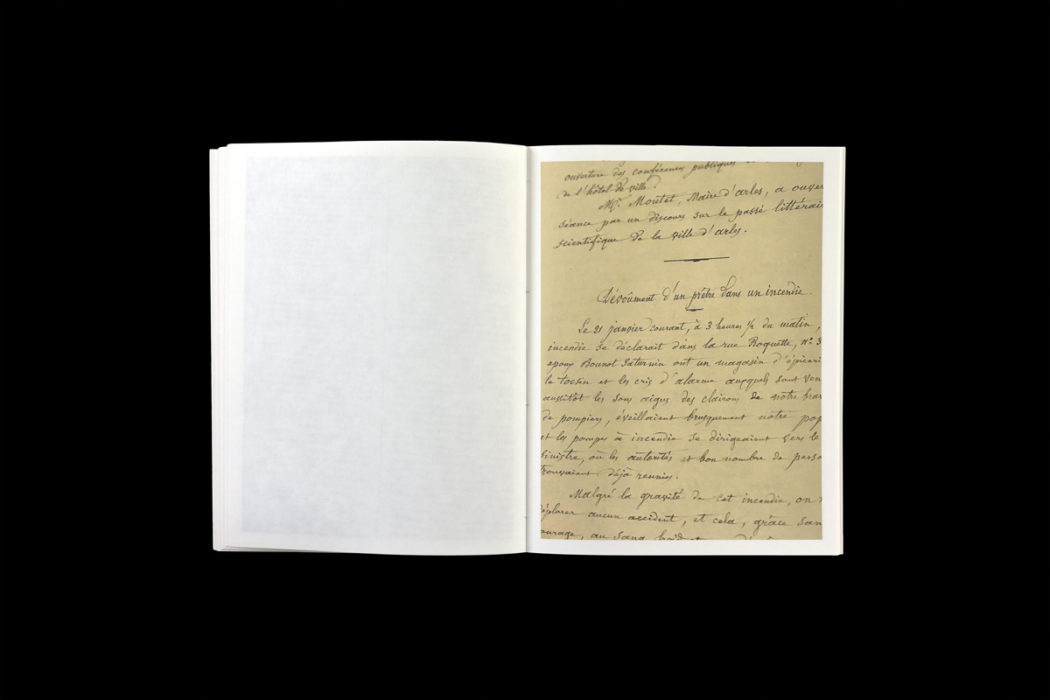 ouverture des conférences publiques
de l'hôtel de ville.
Mr. Moutet, Maire d'arles, a ouver
séance par un discours sur le passé littérai
scientifique de la ville d'arles.
Dévoûment d'un prêtre dans un incendie.
Le 21 janvier courant, à 3 heures ½ du matin,
incendie se déclarait dans la rue Roquette, no. 3
époux Bounot Saturnin ont un magasin d'épiceri
le tocsin et les cris d'alarme auxquels sont ven
aussitôt les sons aigus des clairons de notre brav
de pompiers, éveillaient brusquement notre pop
et les pompes à incendie se dirigeaient vers le
sinistre, où les autorités et bon nombre de perso
trouvaient déjà reunies.
Malgré la gravité de cet incendie, on
déplorer aucun accident, et cela, grâce san
ourage, au sang